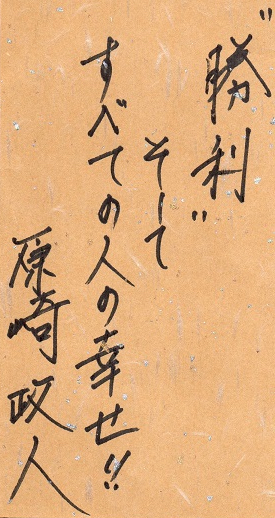 "勝利"
そして
すべての人の幸せ!!
原崎政人